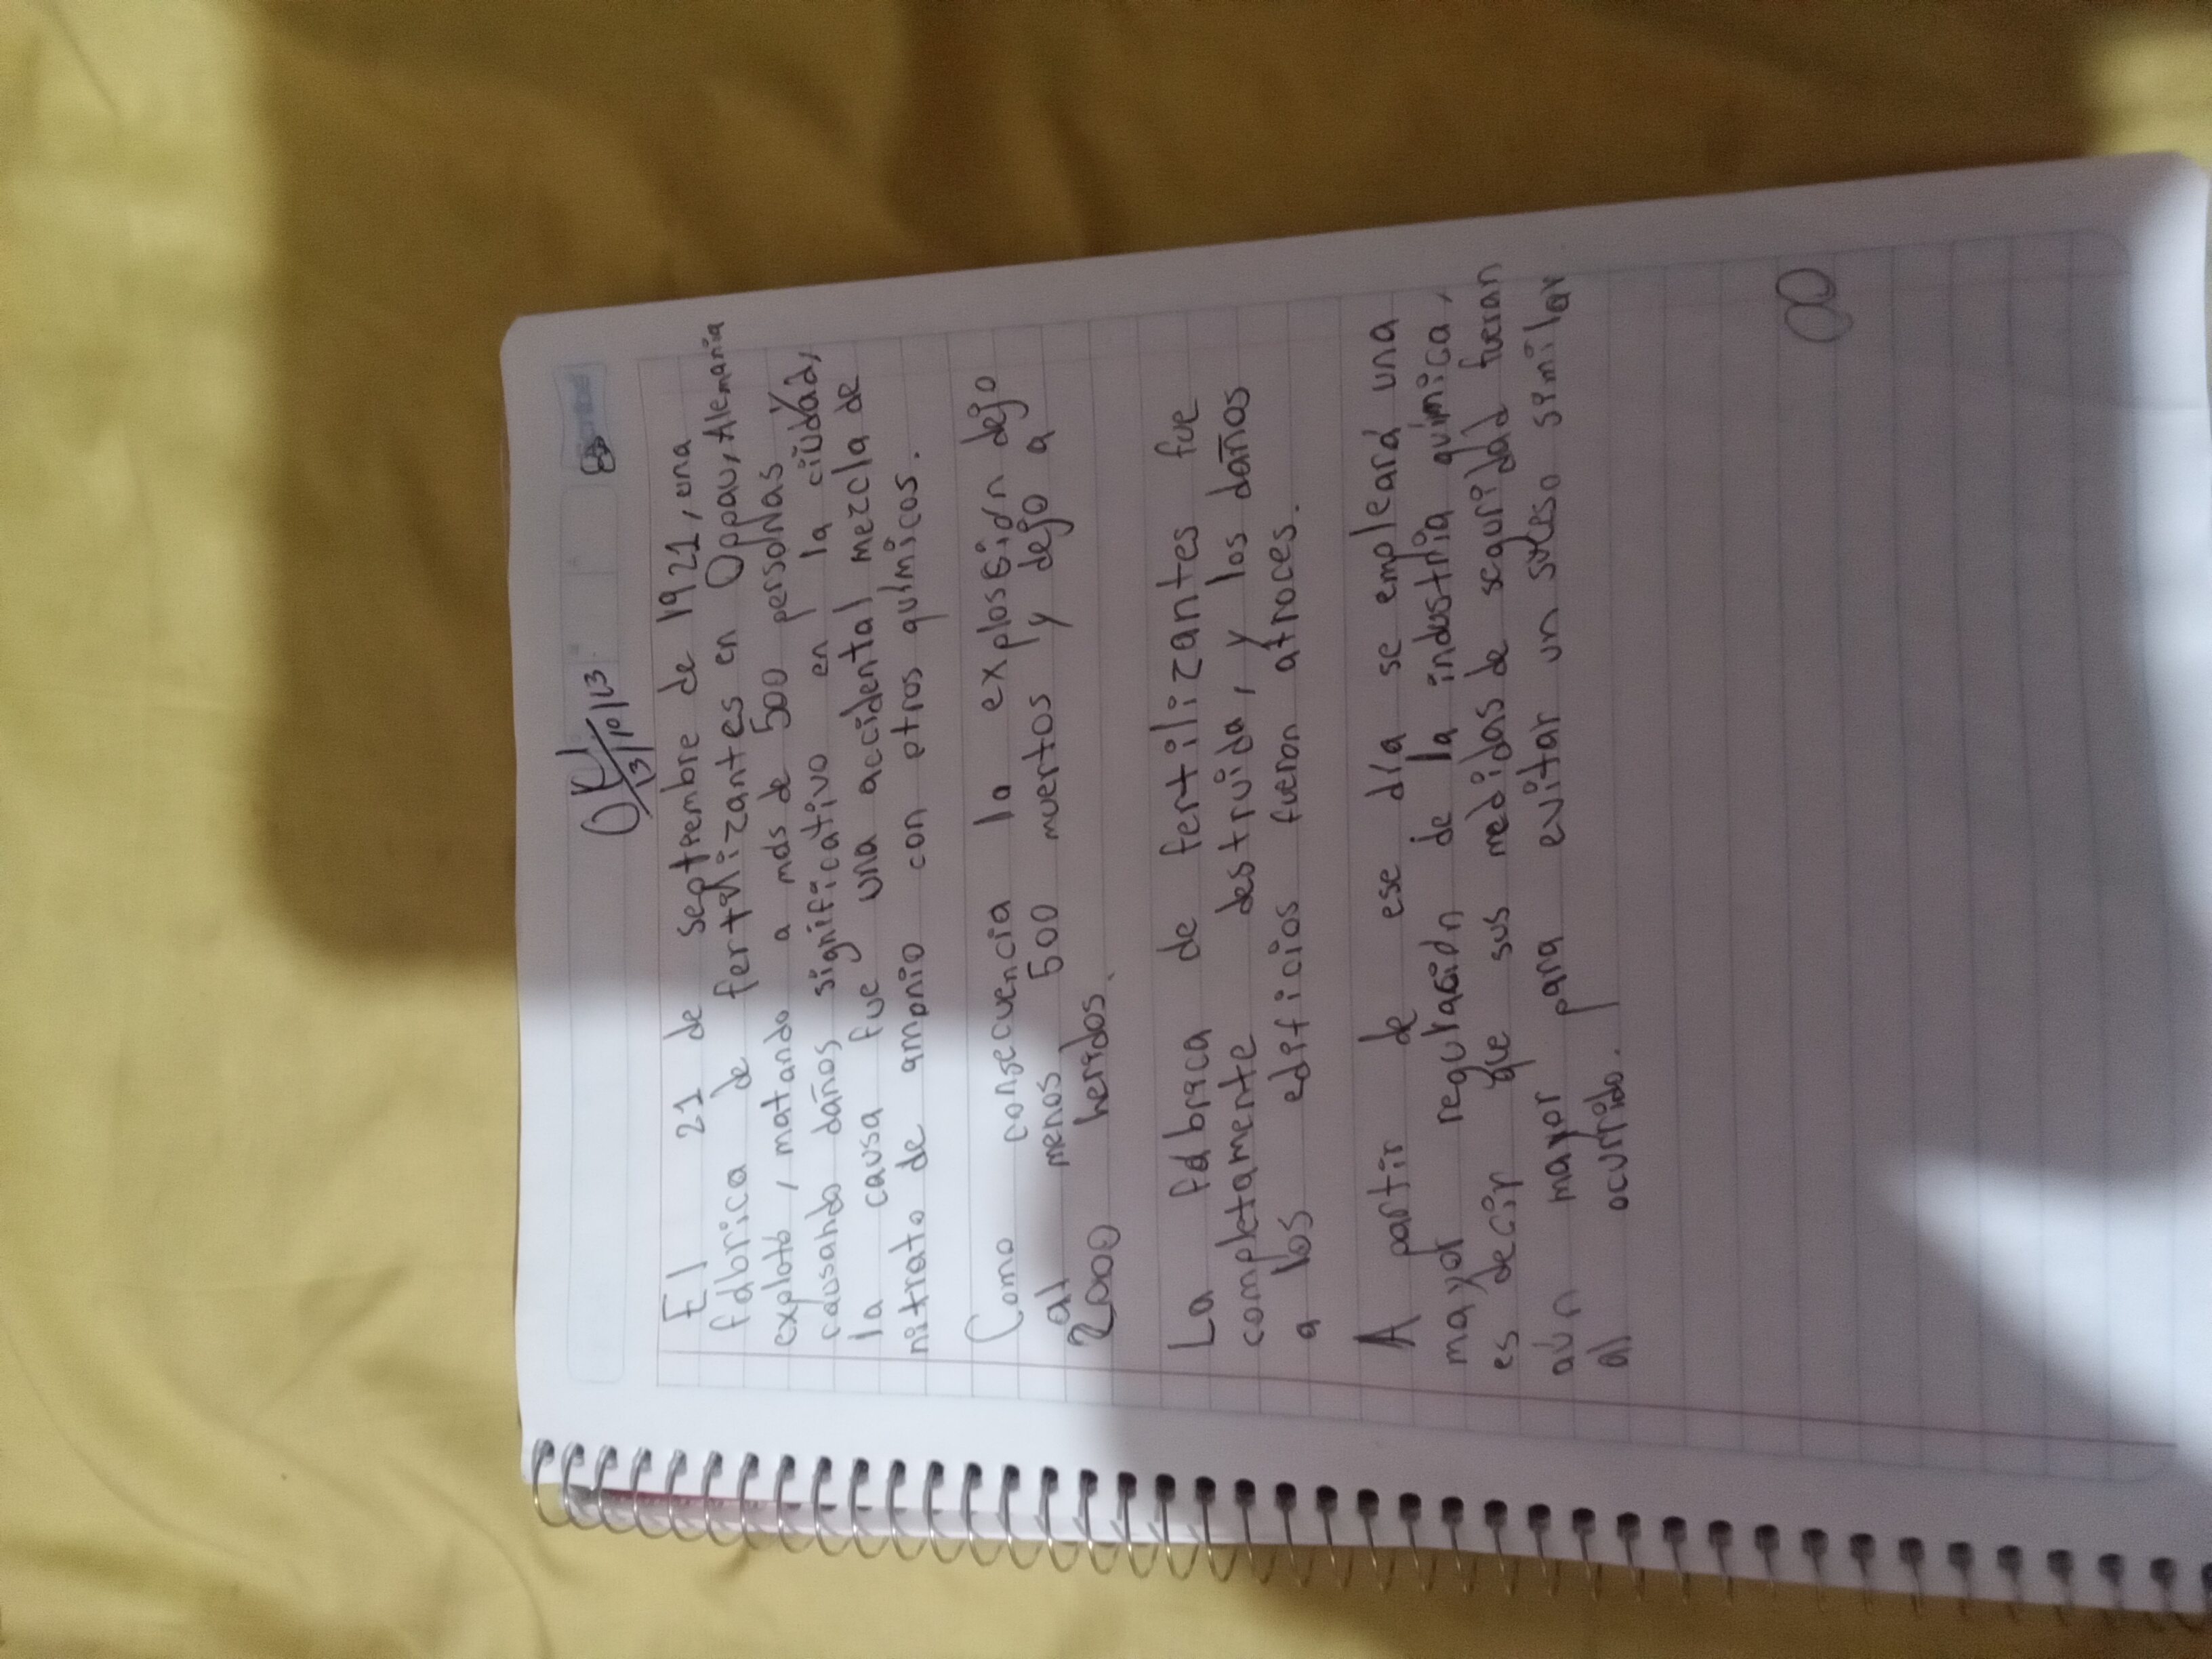 OK/
13/10/23
El 21 de septiembre de 1921, una
fábrica de fertilizantes en Oppau, Alemania
explotó, matando a más de 500 personas
causando daños significativo en la ciudad,
la causa fue una accidental mezcla de
nitrato de amonio con otros químicos.
Como consecuencia la explosión dejo
al menos 500 muertos y dejo a
2000 heridos.
La fábrica de fertilizantes fue
completamente destruida, y los daños
a los edificios fueron atroces.
A partir de ese día se empleará una
mayor regulación de la industria química,
es decir que sus medidas de seguridad fueran
aún mayor para evitar un suceso similar
al ocurrido.